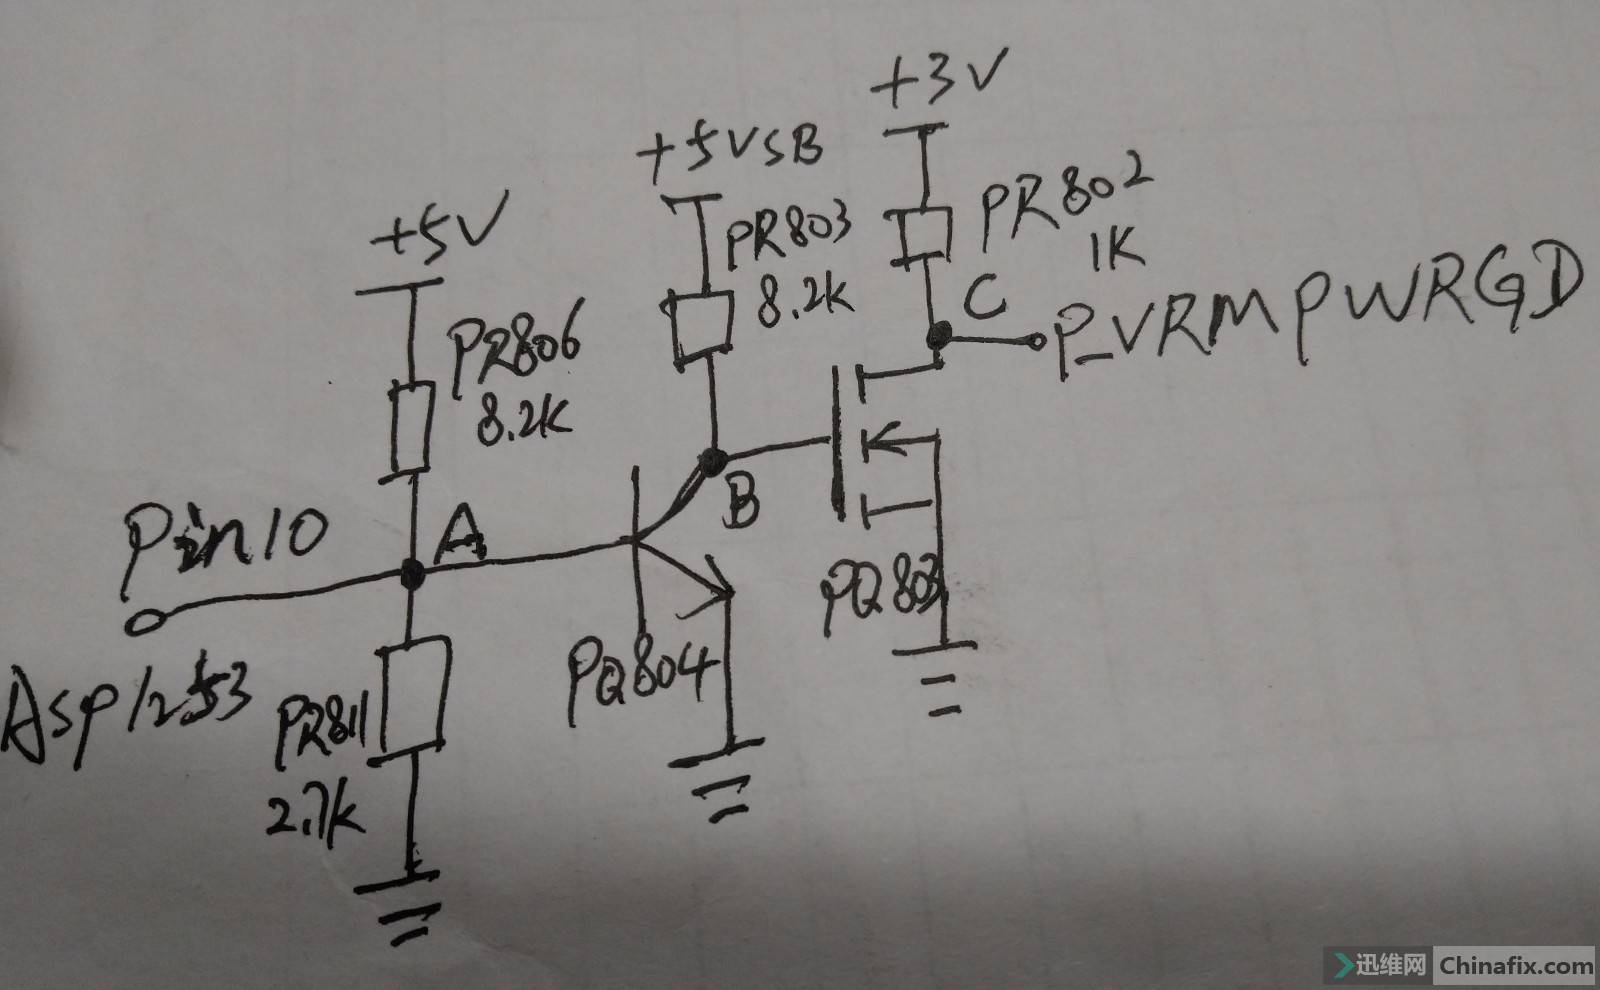 +3V
+5VSB
PR802
1K
+5V
PR803
8.2K
C
P_VRMPWRGD
PR806
8.2K
B
Pin10
A
PQ803
Asp1253
PR811
2.7K
PQ804
迅维网 Chinafix.com